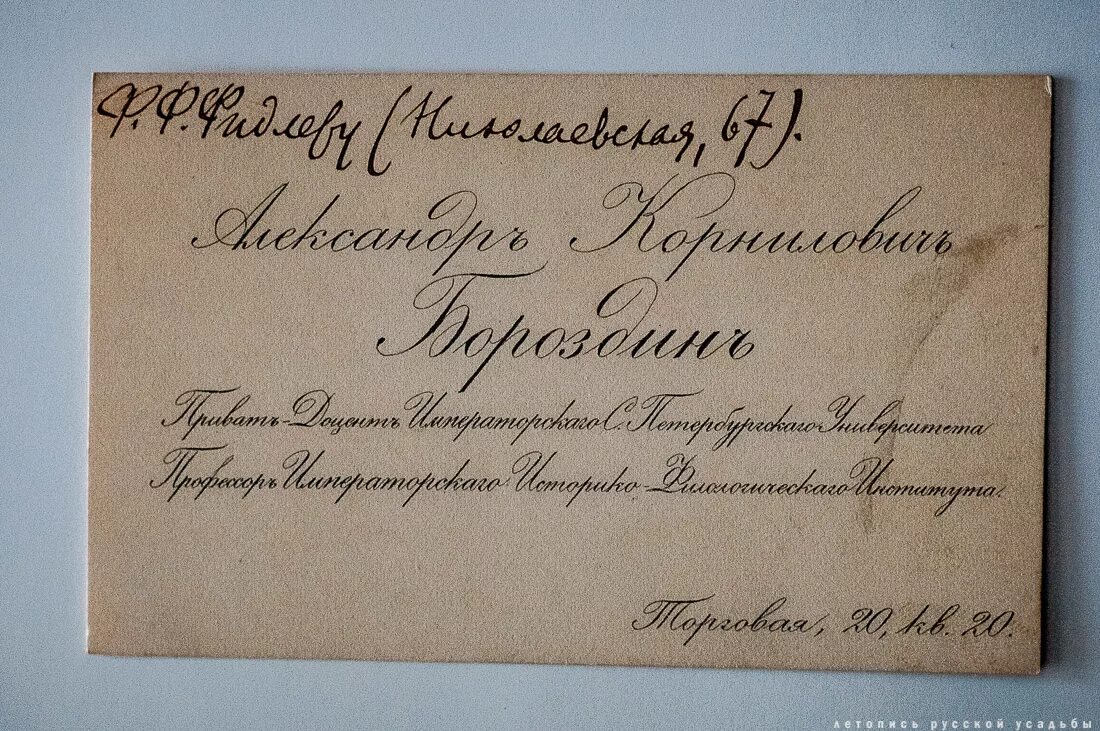 Ф. Ф. Фидлеру (Николаевская, 67).
Александръ Корниловичъ
Бороздинъ
Приватъ-Доцентъ Императорскаго С. Петербургскаго Университета
Профессоръ Императорскаго Историко-Филологическаго Института.
Торговая, 20, кв. 20.
летопись русской усадьбы